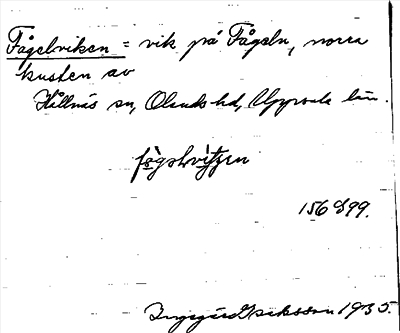 Fågelviken = vik på Fågeln, norra
kusten av
Hållnäs sn, Olands hd, Uppsala län.
156 S99.
Ingegärd Isaksson 1935.